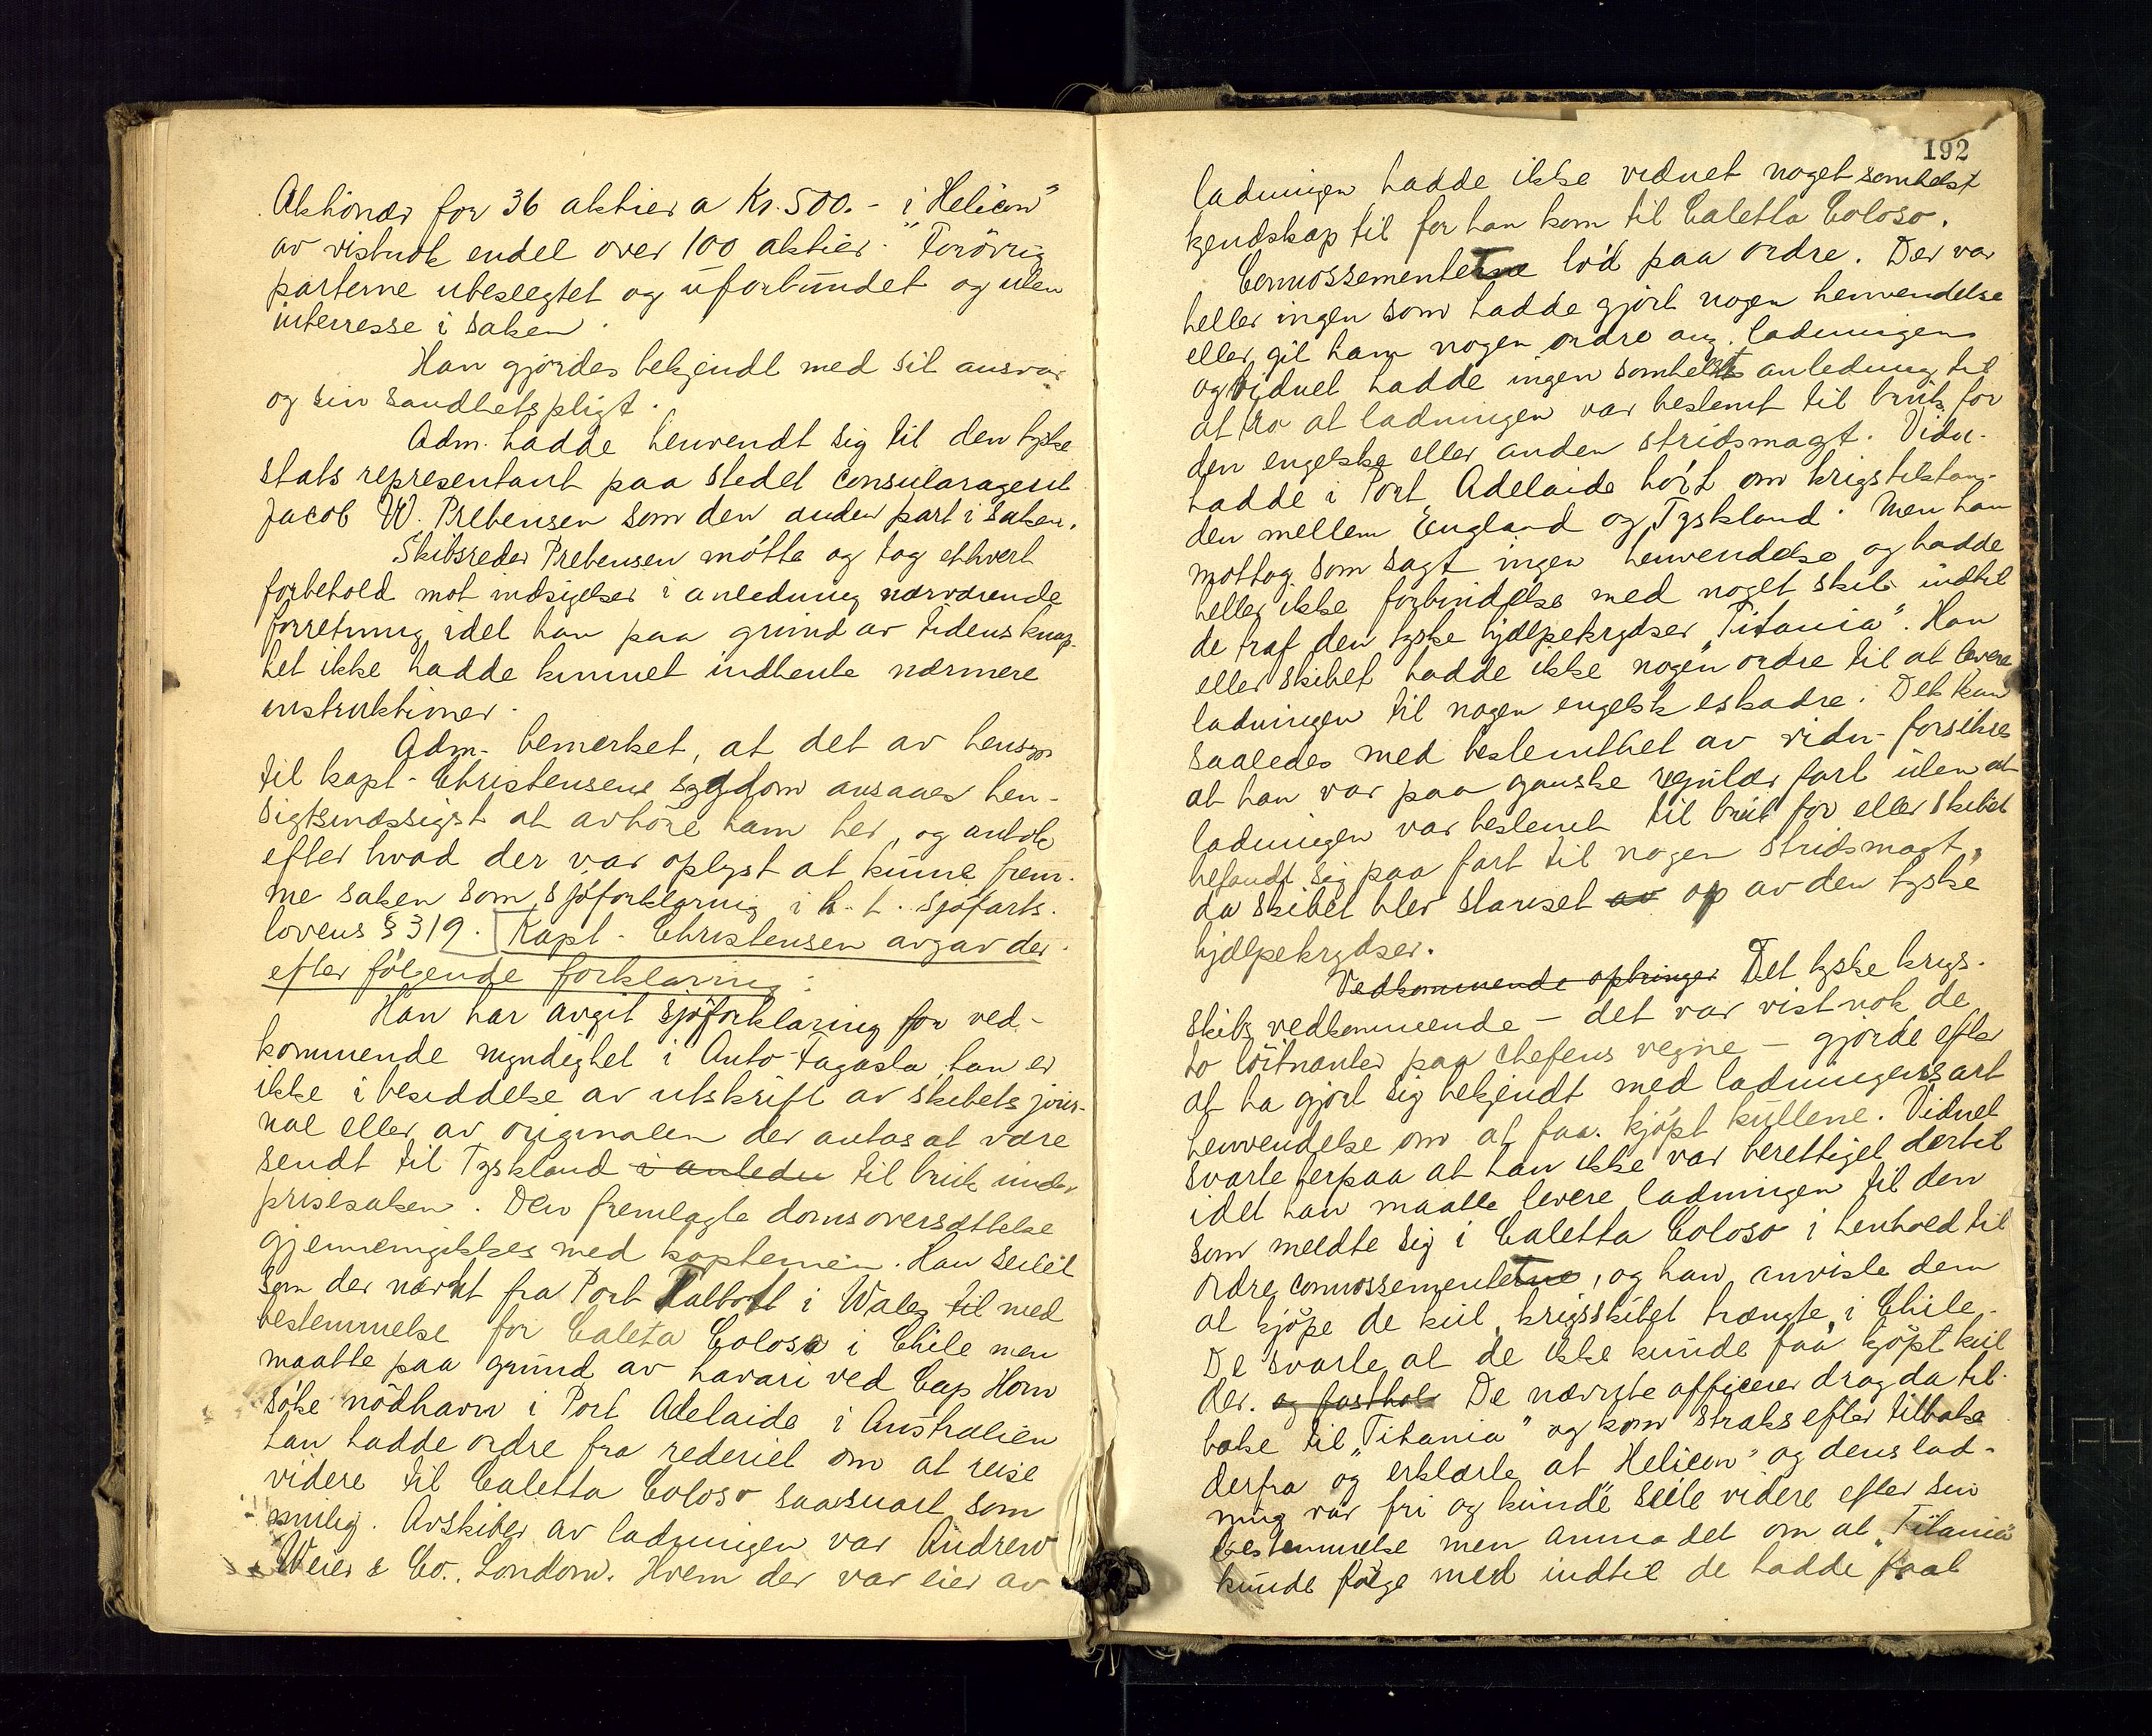 Aktionær for 36 aktier a Kr. 500.- i „Helicon"
av vistnok endel over 100 aktier. Forövrig
parterne ubeslegtet og uforbundet og uten
interresse i saken.
Han gjördes bekjendt med sit ansvar
og sin sandhetspligt.
Adm. hadde henvendt sig til den tyske
stats representant paa stedet consularagent
Jacob W. Prebensen som den anden part i saken.
Skibsreder Prebensen mötte og tog ethvert
forbehold mot indsigelser i anledning nærværende
forretning idet han paa grund av tidens knap-
het ikke hadde kunnet indhente nærmere
instruktioner.
Adm. bemerket, at det av hensyn
til kapt. Christensens sygdom ansaaes hen-
sigtsmæssigst at avhöre ham her, og antok
efter hvad der var oplyst at kunne frem-
me saken som sjöforklaring i h. t. sjöfarts-
lovens § 319. [Kapt. Christensen avgav der-
efter fölgende forklaring:
Han har avgit sjöforklaring for ved-
kommende myndighet i Anto-Fagasta, han er
ikke i besiddelse av utskrift av skibets jour-
nal eller av originalen der antas at være
sendt til Tyskland i anledn til bruk under
prisesaken. Den fremlagte domsoversættelse
gjennemgikkes med kapteinen. Han seilet
som der nævnt fra Port Talbott i Wales til med
bestemmelse for Caleta Coloso i Chile men
maatte paa grund av havari ved Cap Horn
söke nödhavn i Port Adelaide i Australien
han hadde ordre fra rederiet om at reise
videre til Caletta Coloso saasnart som
mulig. Avskiber av ladningen var Andrew
Weier & Co. London. Hvem der var eier av
192
ladningen hadde ikke vidnet noget somhelst
kjendskap til for han kom til Caletta Coloso.
Connossementerne löd paa ordre. Der var
heller ingen som hadde gjört nogen henvendelse
eller git ham nogen ordre ang. ladningen
og vidnet hadde ingen somhelst anledning til
at tro at ladningen var bestemt til bruk for
den engelske eller anden stridsmagt. Vidn.
hadde i Port Adelaide hört om krigstilstan-
den mellem England og Tyskland. Men han
mottog som sagt ingen henvendelse og hadde
heller ikke forbindelse med noget skib indtil
de traf den tyske hjælpekrydser „Titania". Han
eller skibet hadde ikke nogen ordre til at levere
ladningen til nogen engelsk eskadre. Det kan
saaledes med bestemthet av vidn. forsikres
at han var paa ganske regulær fart uten at
ladningen var bestemt til bruk for eller skibet
befandt sig paa fart til nogen stridsmagt,
da skibet blev stanset av op av den tyske
hjælpekrydser.
Vedkommende opbringer Det tyske krigs-
skibs vedkommende – det var vistnok de
to löitnanter paa chefens vegne – gjorde efter
at ha gjort sig bekjendt med ladningens art
henvendelse om at faa kjöpt kullene. Vidnet
svarte herpaa at han ikke var berettiget dertil
idet han maatte levere ladningen til den
som meldte sig i Caletta Coloso i henhold til
ordre connossementerne, og han anviste dem
at kjöpe de kul, krigsskibet trængte, i Chile.
De svarte at de ikke kunde faa kjöpt kul
der. og fastholt De nævnte officerer drog da til-
bake til „Titania" og kom straks efter tilbake
derfra og erklærte at „Helicon" og dens lad-
ning var fri og kunde seile videre efter sin
bestemmelse men anmodet om at „Titania"
kunde fölge med indtil de hadde faat